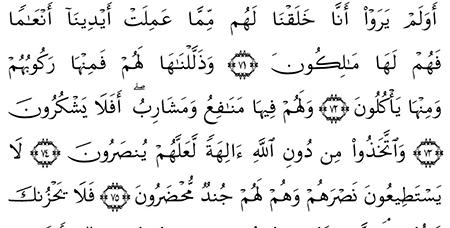 أَوَلَمْ يَرَوْا۟ أَنَّا خَلَقْنَا لَهُم مِّمَّا عَمِلَتْ أَيْدِينَآ أَنْعَـٰمًا
فَهُمْ لَهَا مَـٰلِكُونَ ﴿٧١﴾ وَذَلَّلْنَـٰهَا لَهُمْ فَمِنْهَا رَكُوبُهُمْ
وَمِنْهَا يَأْكُلُونَ ﴿٧٢﴾ وَلَهُمْ فِيهَا مَنَـٰفِعُ وَمَشَارِبُ ۖ أَفَلَا يَشْكُرُونَ
﴿٧٣﴾ وَٱتَّخَذُوا۟ مِن دُونِ ٱللَّهِ ءَالِهَةً لَّعَلَّهُمْ يُنصَرُونَ ﴿٧٤﴾ لَا
يَسْتَطِيعُونَ نَصْرَهُمْ وَهُمْ لَهُمْ جُندٌ مُّحْضَرُونَ ﴿٧٥﴾ فَلَا يَحْزُنكَ